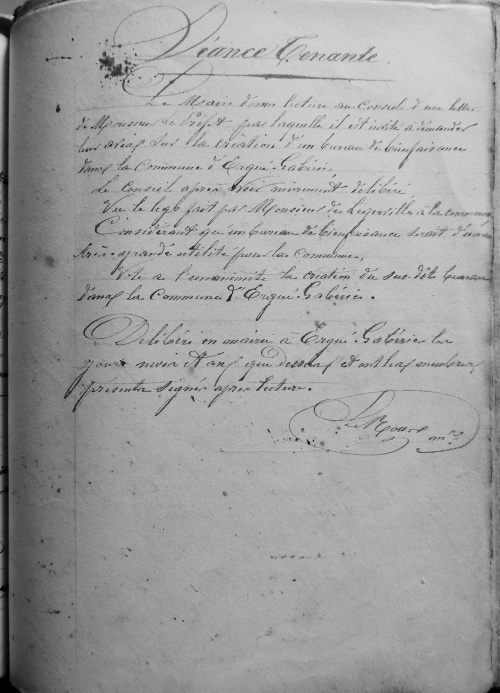 Séance Tenante
Le Maire donne lecture au Conseil d'une lettre
de Monsieur le Préfet par laquelle il est invité à demander
leur avis sur la création d'un bureau de bienfaisance
dans la Commune d'Ergué-Gabéric.
Le Conseil après avoir mûrement délibéré
Vu le legs fait par Monsieur de à la commune
Considérant qu'un bureau de bienfaisance serait d'une
très grande utilité pour la commune,
Vote à l'unanimité la création du sus-dit bureau
dans la Commune d'Ergué-Gabéric.
Délibéré en mairie à Ergué-Gabéric les
jours mois et ans que dessus et ont les membres
présents signés après lecture.
Le Roux mre